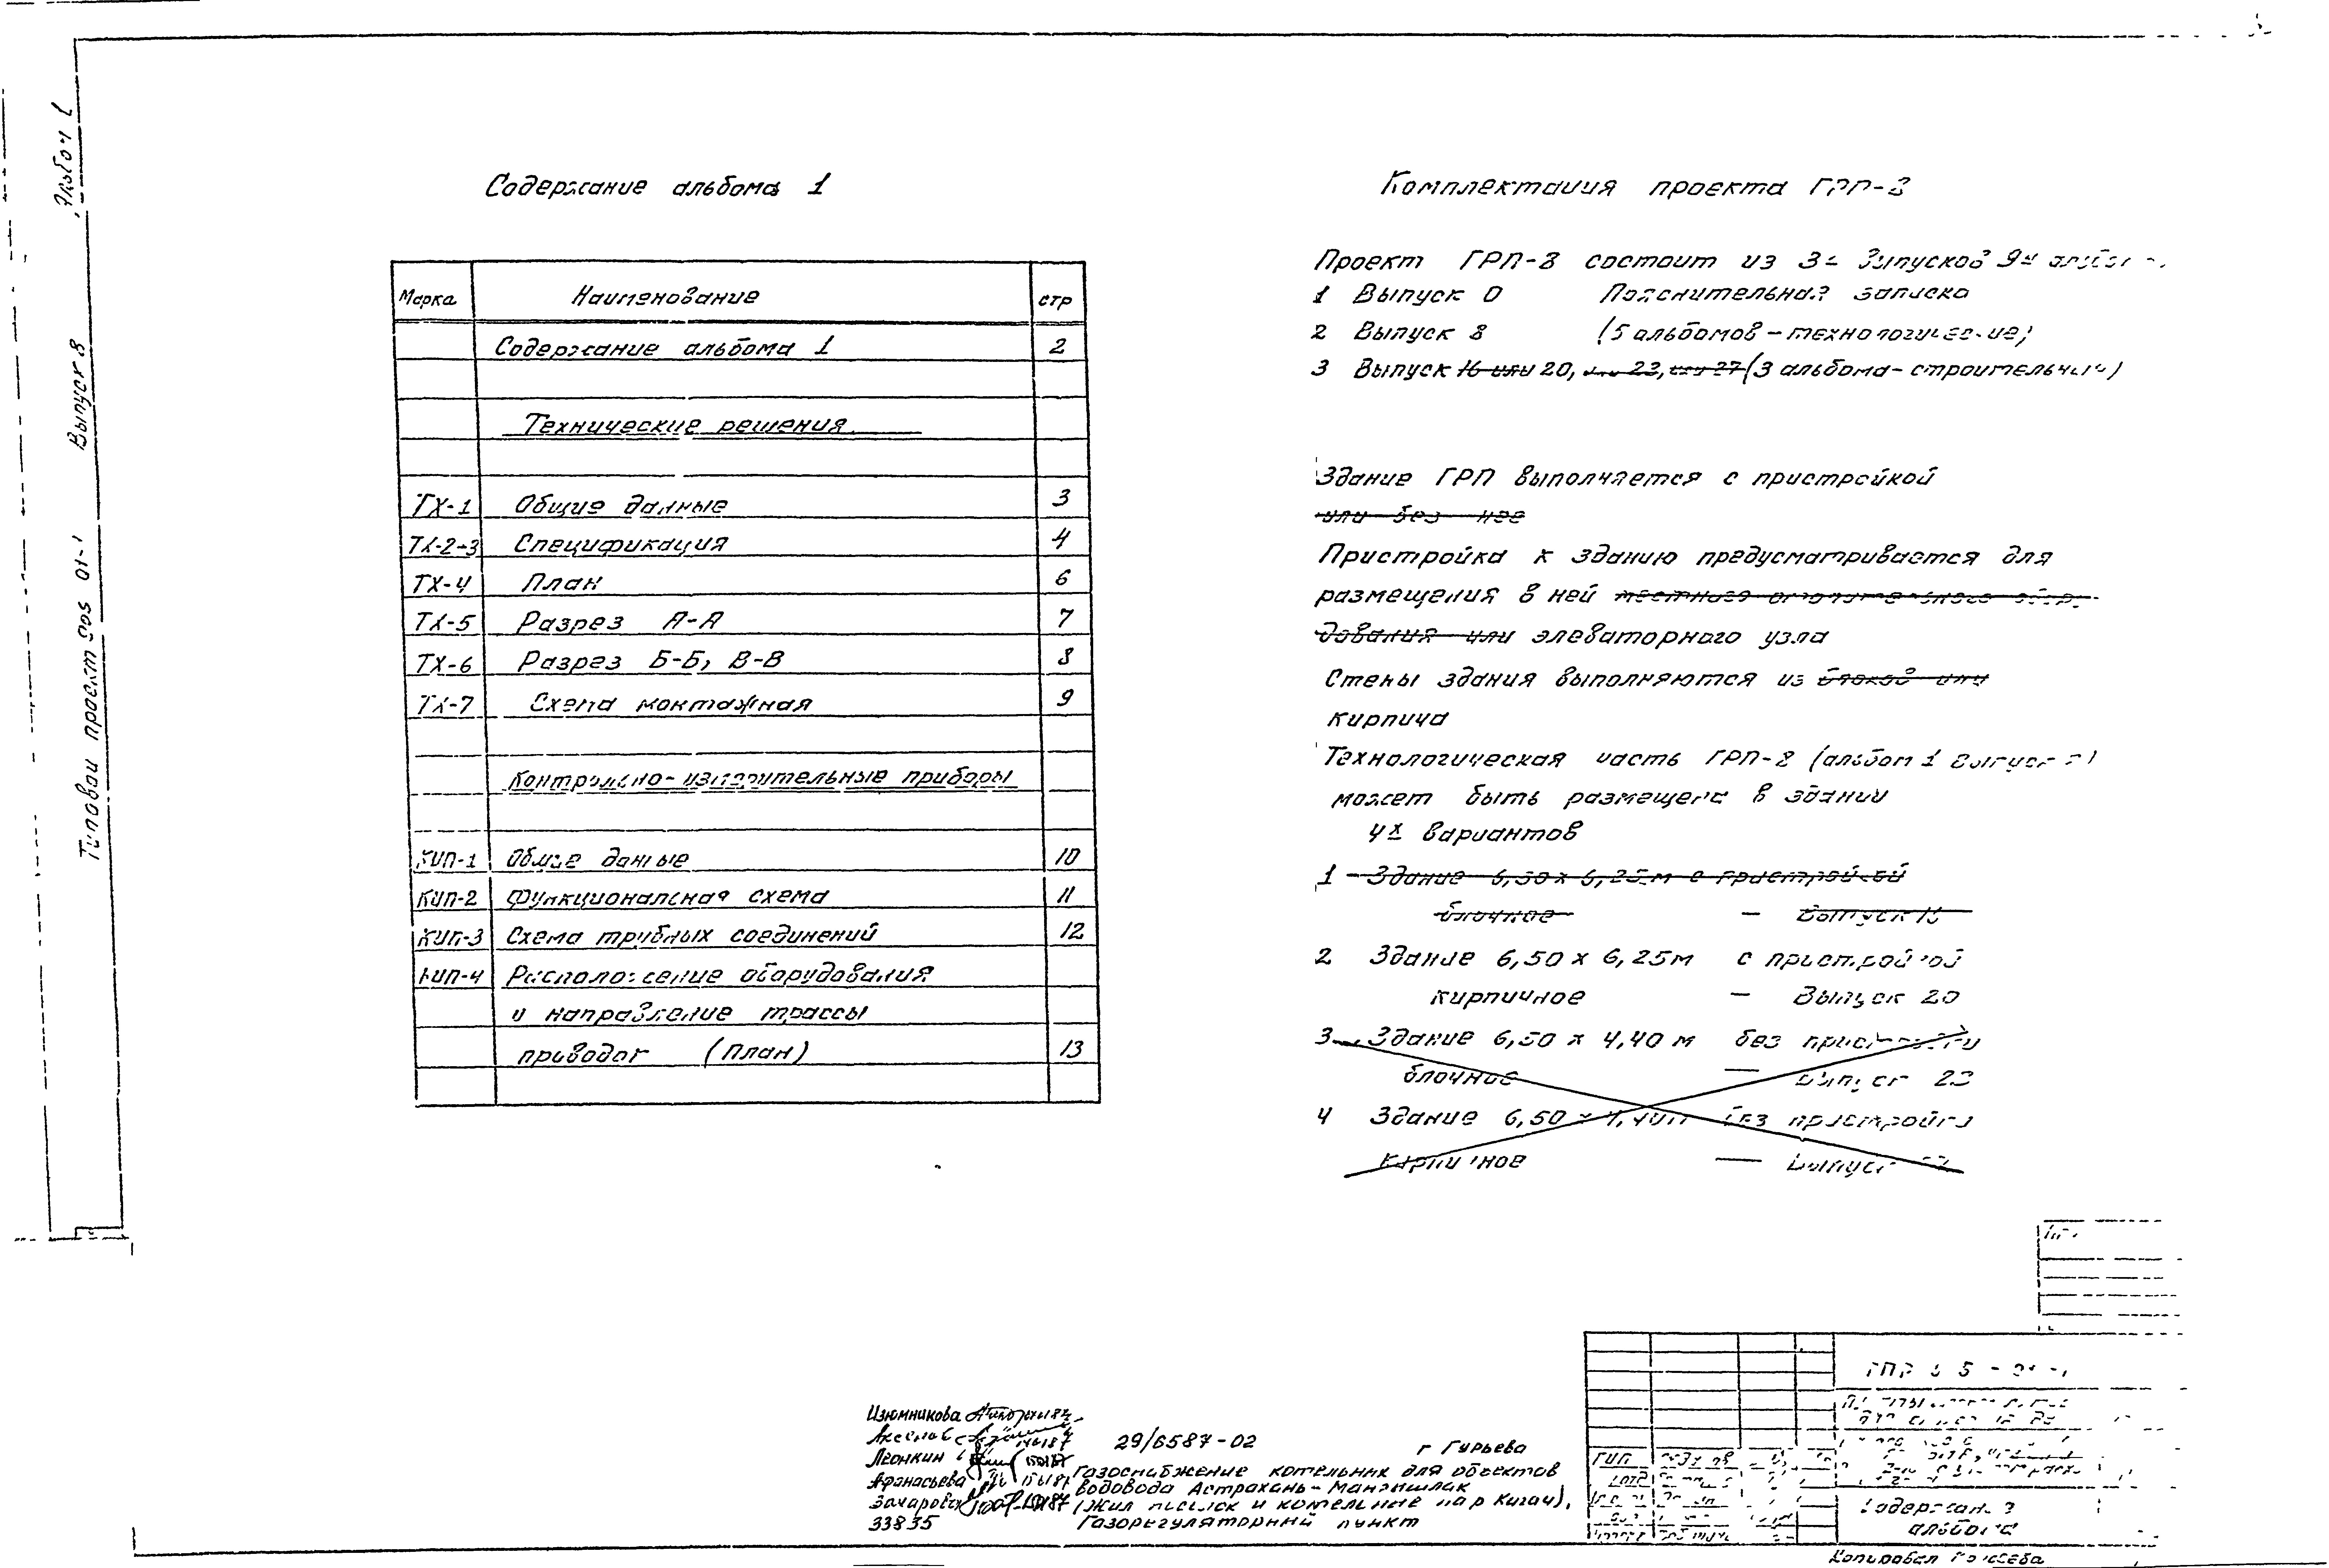 Альбом 1
Выпуск 8
Типовой проект 905 01-1
Содержание альбома 1
Марка Наименование стр
Содержание альбома 1 2
Технические решения
ТХ-1 Общие данные 3
ТХ-2÷3 Спецификация 4
ТХ-4 План 6
ТХ-5 Разрез А-А 7
ТХ-6 Разрез Б-Б, В-В 8
ТХ-7 Схема монтажная 9
Контрольно-измерительные приборы
КИП-1 Общие данные 10
КИП-2 Функциональная схема 11
КИП-3 Схема трубных соединений 12
КИП-4 Расположение оборудования
и направление трассы
проводок (План) 13
Комплектация проекта ГРП-8
Проект ГРП-8 состоит из 3х выпусков 9и
1 Выпуск 0 Пояснительная записка
2 Выпуск 8 (5 альбомов-технологические)
3 Выпуск 16 или 20, или 23, или 27 (3 альбома-строительные)
Здание ГРП выполняется с пристройкой
или без нее
Пристройка к зданию предусматривается для
размещения в ней местного отопительного обору-
дования или элеваторного узла
Стены здания выполняются из блоков или
кирпича
Технологическая часть ГРП-8 (альбом 1 Выпуск 8)
может быть размещена в здании
4х вариантов
1 Здание 6,50 х 6,25м с пристройкой
блочное - Выпуск 16
2 Здание 6,50 х 6,25м с пристройкой
кирпичное - Выпуск 20
3. Здание 6,50 х 4,40 м без пристройки
блочное - Выпуск 23
4 Здание 6,50 х 4,40м без пристройки
Кирпичное - Выпуск
Изюмникова
Аксенов
Леонкин
Афанасьева
Захарова
33835
29/6587-02
г Гурьева
Газоснабжение котельник для объектов
водовода Астрахань-Мангышлак
(жил поселок и котельные на р Кигач),
Газорегуляторный пункт
ГИП
Содержание
альбома
Копировал